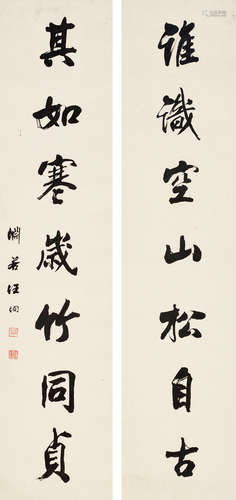 谁識空山松自古
其如寒歲竹同貞
淵若汪洵